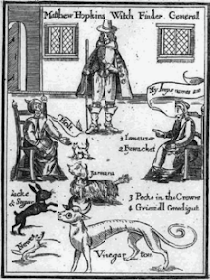 Matthew Hopkins Witch Finder Generall
My Impes names are
Holt
1 Ilemauzar
2 Pyewackett
Jarmara
3 Pecke in the Crowne
4 Griezzell Greedigutt
Sacke
& Sugar
Newes
Vinegar tom